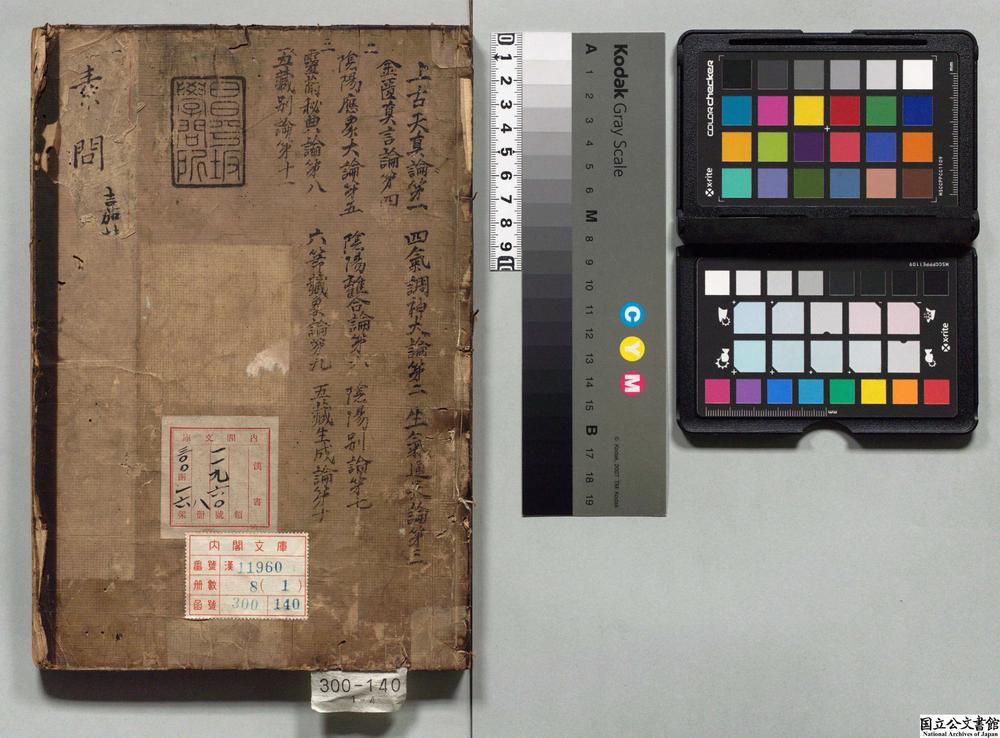 素問
上古天真論第一 四氣調神大論第二 生氣通天論第三
二
金匱真言論第四
陰陽應象大論第五 陰陽離合論第六 陰陽別論第七
三
靈蘭秘典論第八 六節藏象論第九 五藏生成論第十
五藏別論第十一
昌平坂
學問所
內閣文庫
漢書
一一九六〇
號
八
册
三〇〇
函
一六
架
內閣文庫
番號 漢 11960
册數 8(1)
函號 300 140
300-140
0 1 2 3 4 5 6 7 8 9 10
Kodak Gray Scale
A 1 2 3 4 5 6 M 8 9 10 11 12 13 14 15 B 17 18 19
C Y M
© Kodak, 2007 TM: Kodak
colorchecker
x-rite
MSCCPPCC1109
mm
MSCCPPPE1109
x-rite
mm
国立公文書館
National Archives of Japan